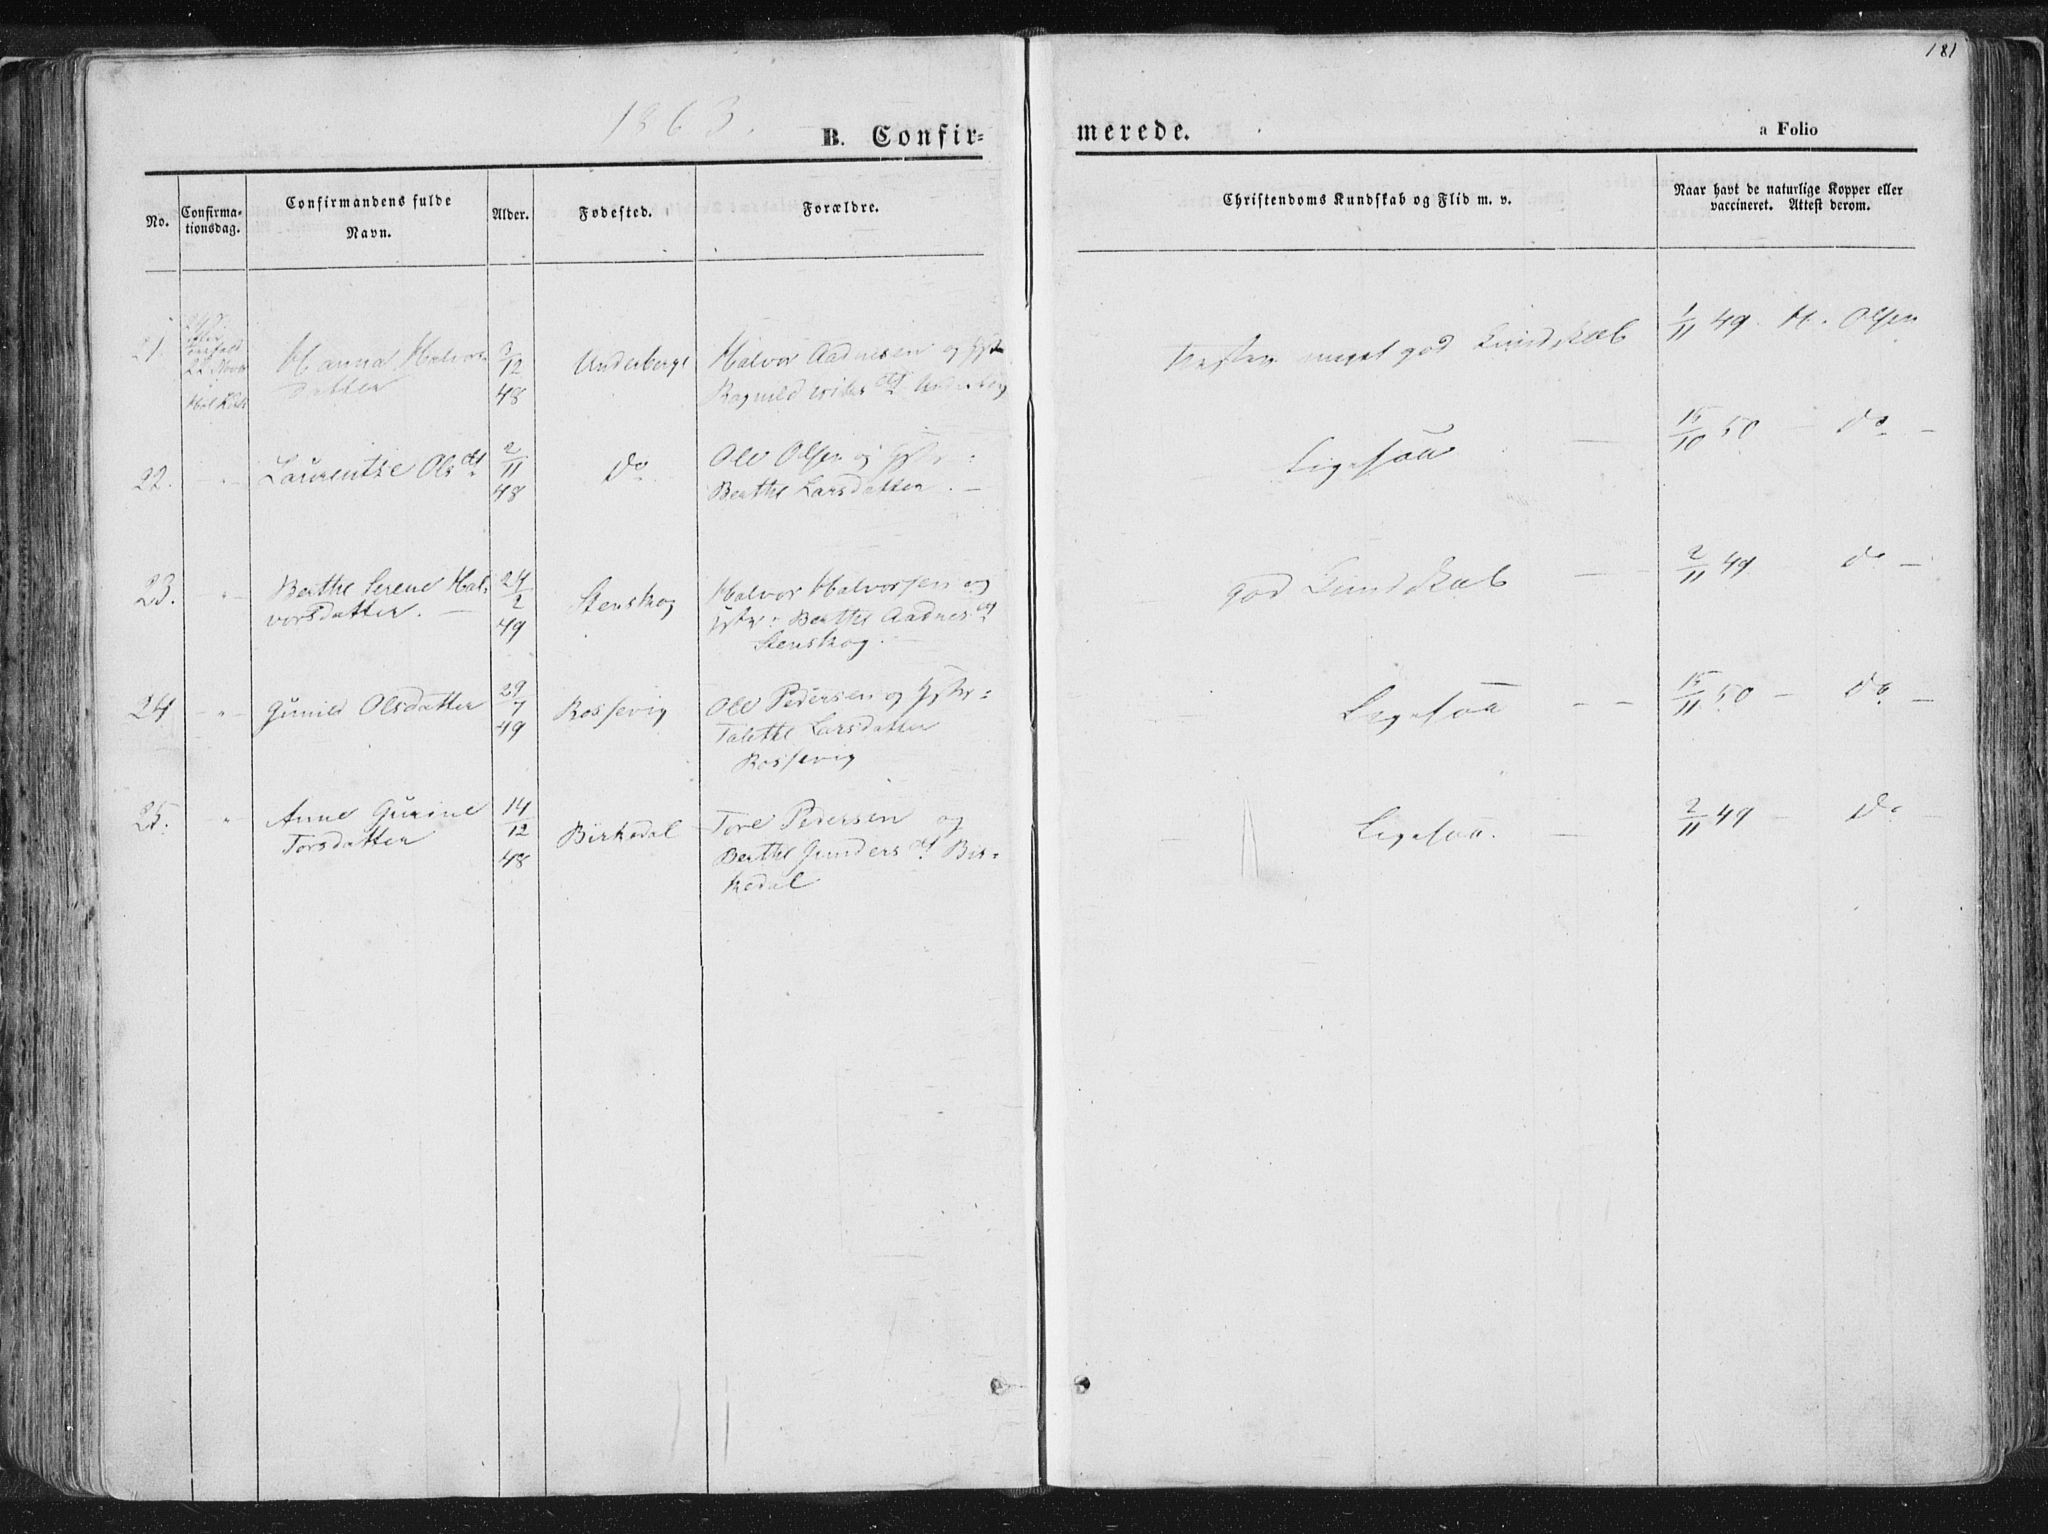 181
1863.
B. Confir=
merede.
a Folio
No.
Confirma-
tionsdag.
Confirmandens fulde
Navn.
Alder.
Fødested.
Forældre.
Christendoms Kundskab og Flid m. v.
Naar havt de naturlige Kopper eller
vaccineret. Attest derom.
21.
22 Nov
Hanna Halvors
datter
2/12
48
Underberge
Halvor Aadnesen og Hstr
Ragnild
Næsten meget god Kundskab
1/11 49. H. Olsen
22. " Laurentse Olsdt
2/11
48
Do
Ole Olsen og Hstr:
Berthe Larsdatter. -
Ligesaa
15/10 50 - Do -
23. " Berthe Serene Hal-
vorsdatter. -
24/2
49
Stenskog
Halvor Halvorsen og
Hstr: Berthe Aadnesdt
Stenskog. -
god Kundskab
2/11 49 Do -
24 - " - Gunild Olsdatter
29/7
49
Rossevig
Ole Pedersen og Hstr:
Talette Larsdatter
Rossevig
Ligesaa
15/11 50 - Do -
25. " Anne Gurine
Torsdatter
14/12
48
Birkedal
Tore Pedersen og
Berthe Gundersdt Bir-
kedal
Ligesaa. -
2/11 49 - Do -